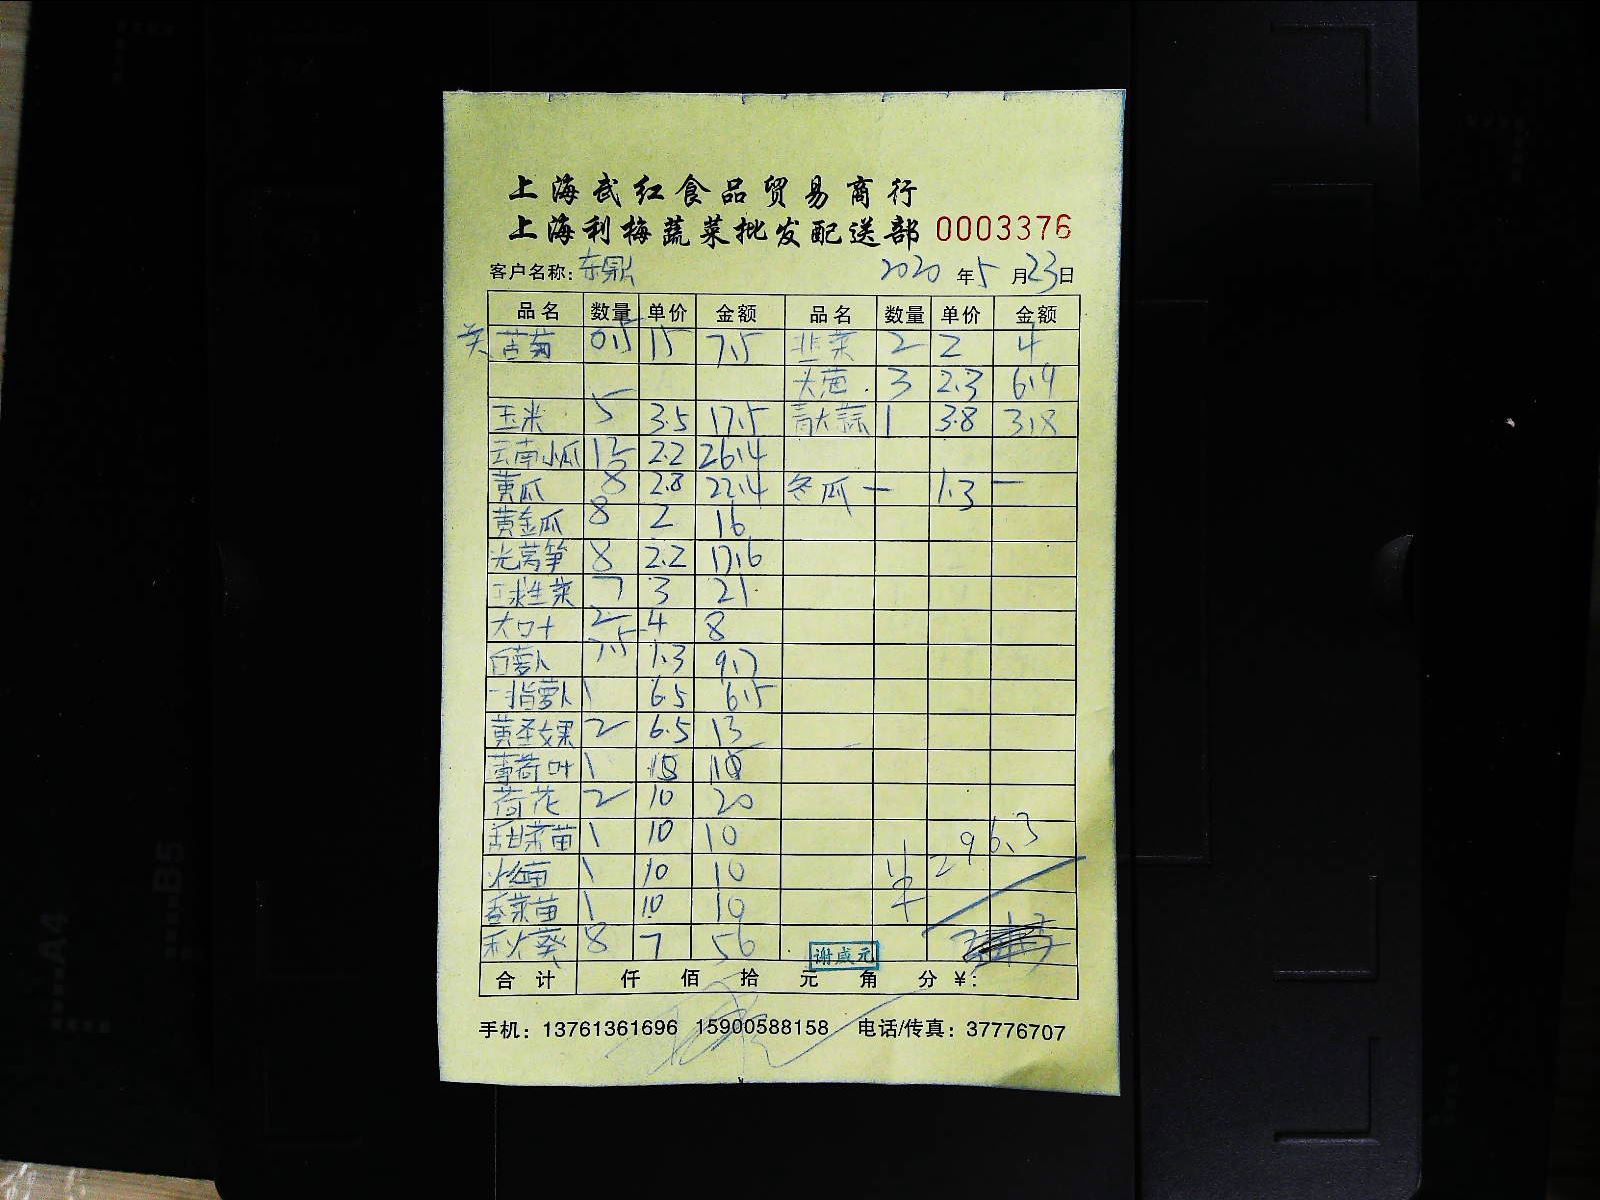 上海武红食品贸易商行
上海利梅蔬菜批发配送部 0003376
客户名称: 东鼎 2020 年 5 月 23 日
品名 数量 单价 金额 品名 数量 单价 金额
苦菊 0.5 15 7.5 韭菜 2 2 4
大葱 3 2.3 6.9
玉米 5 3.5 17.5 青大蒜 1 3.8 3.8
云南小瓜 12 2.2 26.4
黄瓜 8 2.8 22.4 冬瓜 一 1.3 一
黄金瓜 8 2 16
光莴笋 8 2.2 17.6
球生菜 7 3 21
大口十 2 4 8
白萝卜 7.5 1.3 9.7
一指萝卜 1 6.5 6.5
黄圣女果 2 6.5 13
薄荷叶 1
荷花 2 10 20
甜菜苗 1 10 10
1 10 10
香菜苗 1 10 10
秋葵 8 7 56
296.3
谢咸元
合计 仟 佰 拾 元 角 分 ¥:
手机: 13761361696 15900588158 电话/传真: 37776707
A4
B5